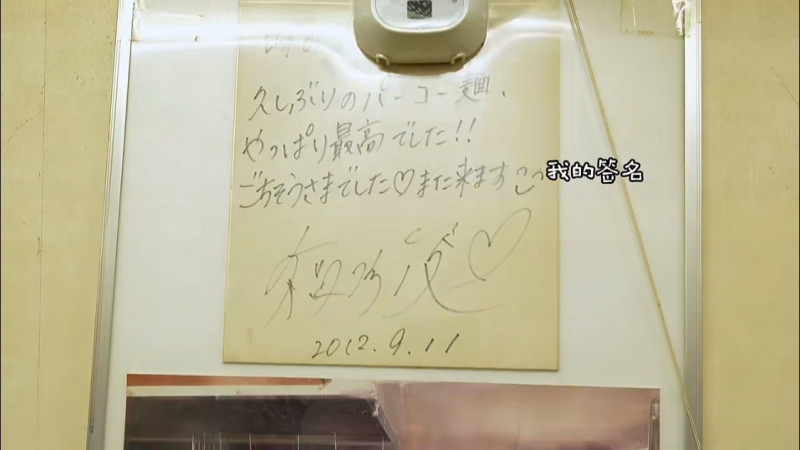 久しぶりのパーコー麺、
やっぱり最高でした!!
ごちそうさまでした♡また来ます
我的签名
2012.9.11